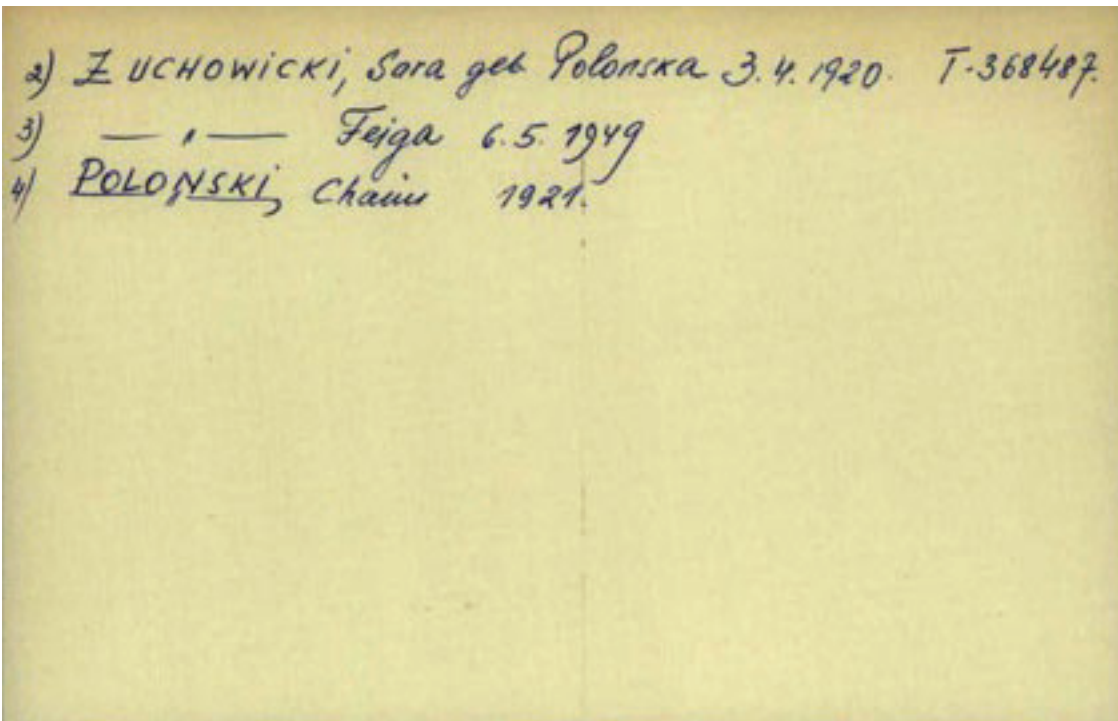 2) ZUCHOWICKI, Sara geb Polonska 3.4.1920. T-368487.
3) — " — Fejga 6.5.1949
4) POLONSKI, Chaim 1921.